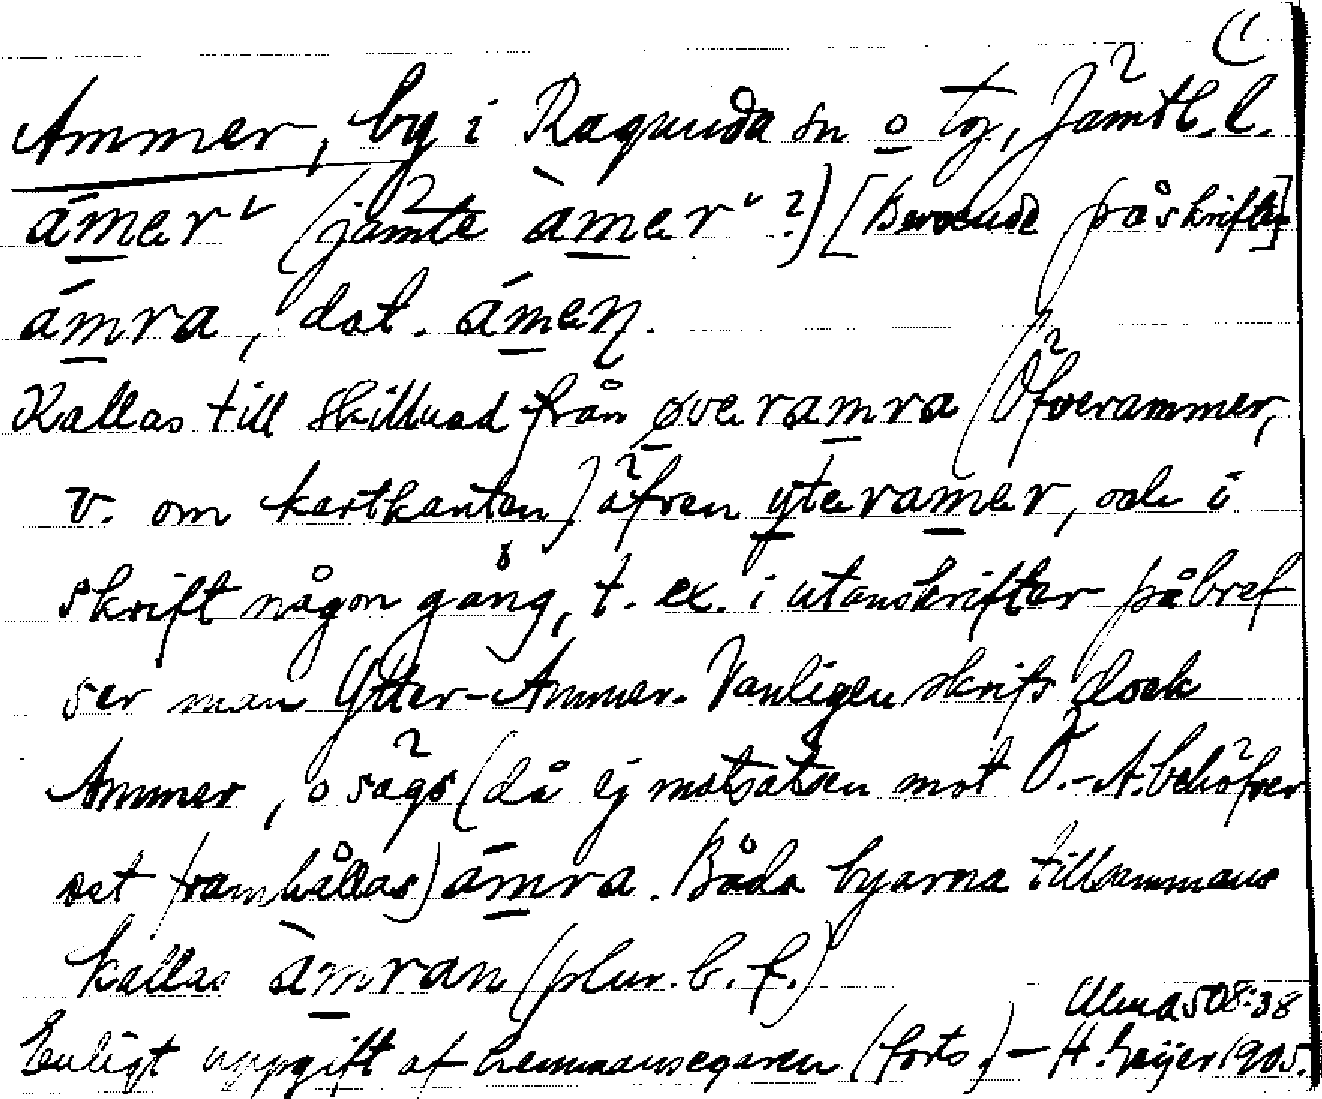 (1
Ammer, by i Ragunda sn o tg, Jämtl. l.
ámer (jämte àmer ?) [Beroende på skriften]
ámra, dat. ámeṇ.
Kallas till skillnad från øveramra (Öfverammer,
v. om kartkanten) äfven yteramer, och i
skrift någon gång, t. ex. i utanskrifter på bref
ser man Ytter-Ammer. Vanligen skrifs dock
Ammer, o sägs (då ej motsatsen mot Ö.-A. behöfver
sät framhållas) ámra. Båda byarna tillsammans
kallas àmran (plur. b. f.)
Alm a 508:38
Enligt uppgift af hemmansegaren (forts.) – H. Geijer 1905.